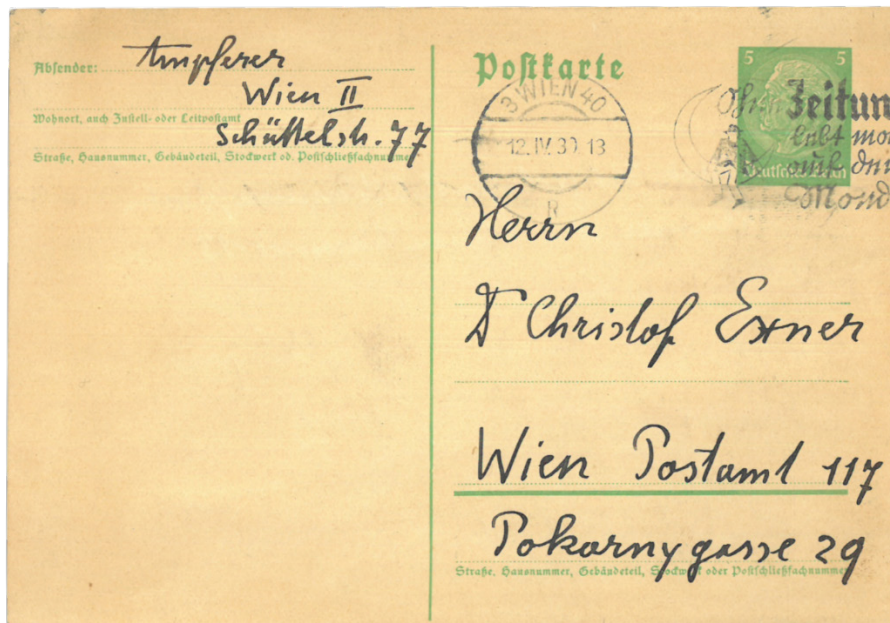 Absender: Ampferer
Wien II
Wohnort, auch Zustell- oder Leitpostamt
Schüttelstr. 77
Straße, Hausnummer, Gebäudeteil, Stockwerk od. Postschließfachnummer
Postkarte
3 WIEN 40
12.IV.39 13
R
5 5
Deutsches Reich
Ohne Zeitun
lebt man
auf dem
Mond
Herrn
Dr Christof Exner
Wien Postamt 117
Pokornygasse 29
Straße, Hausnummer, Gebäudeteil, Stockwerk oder Postschließfachnummer